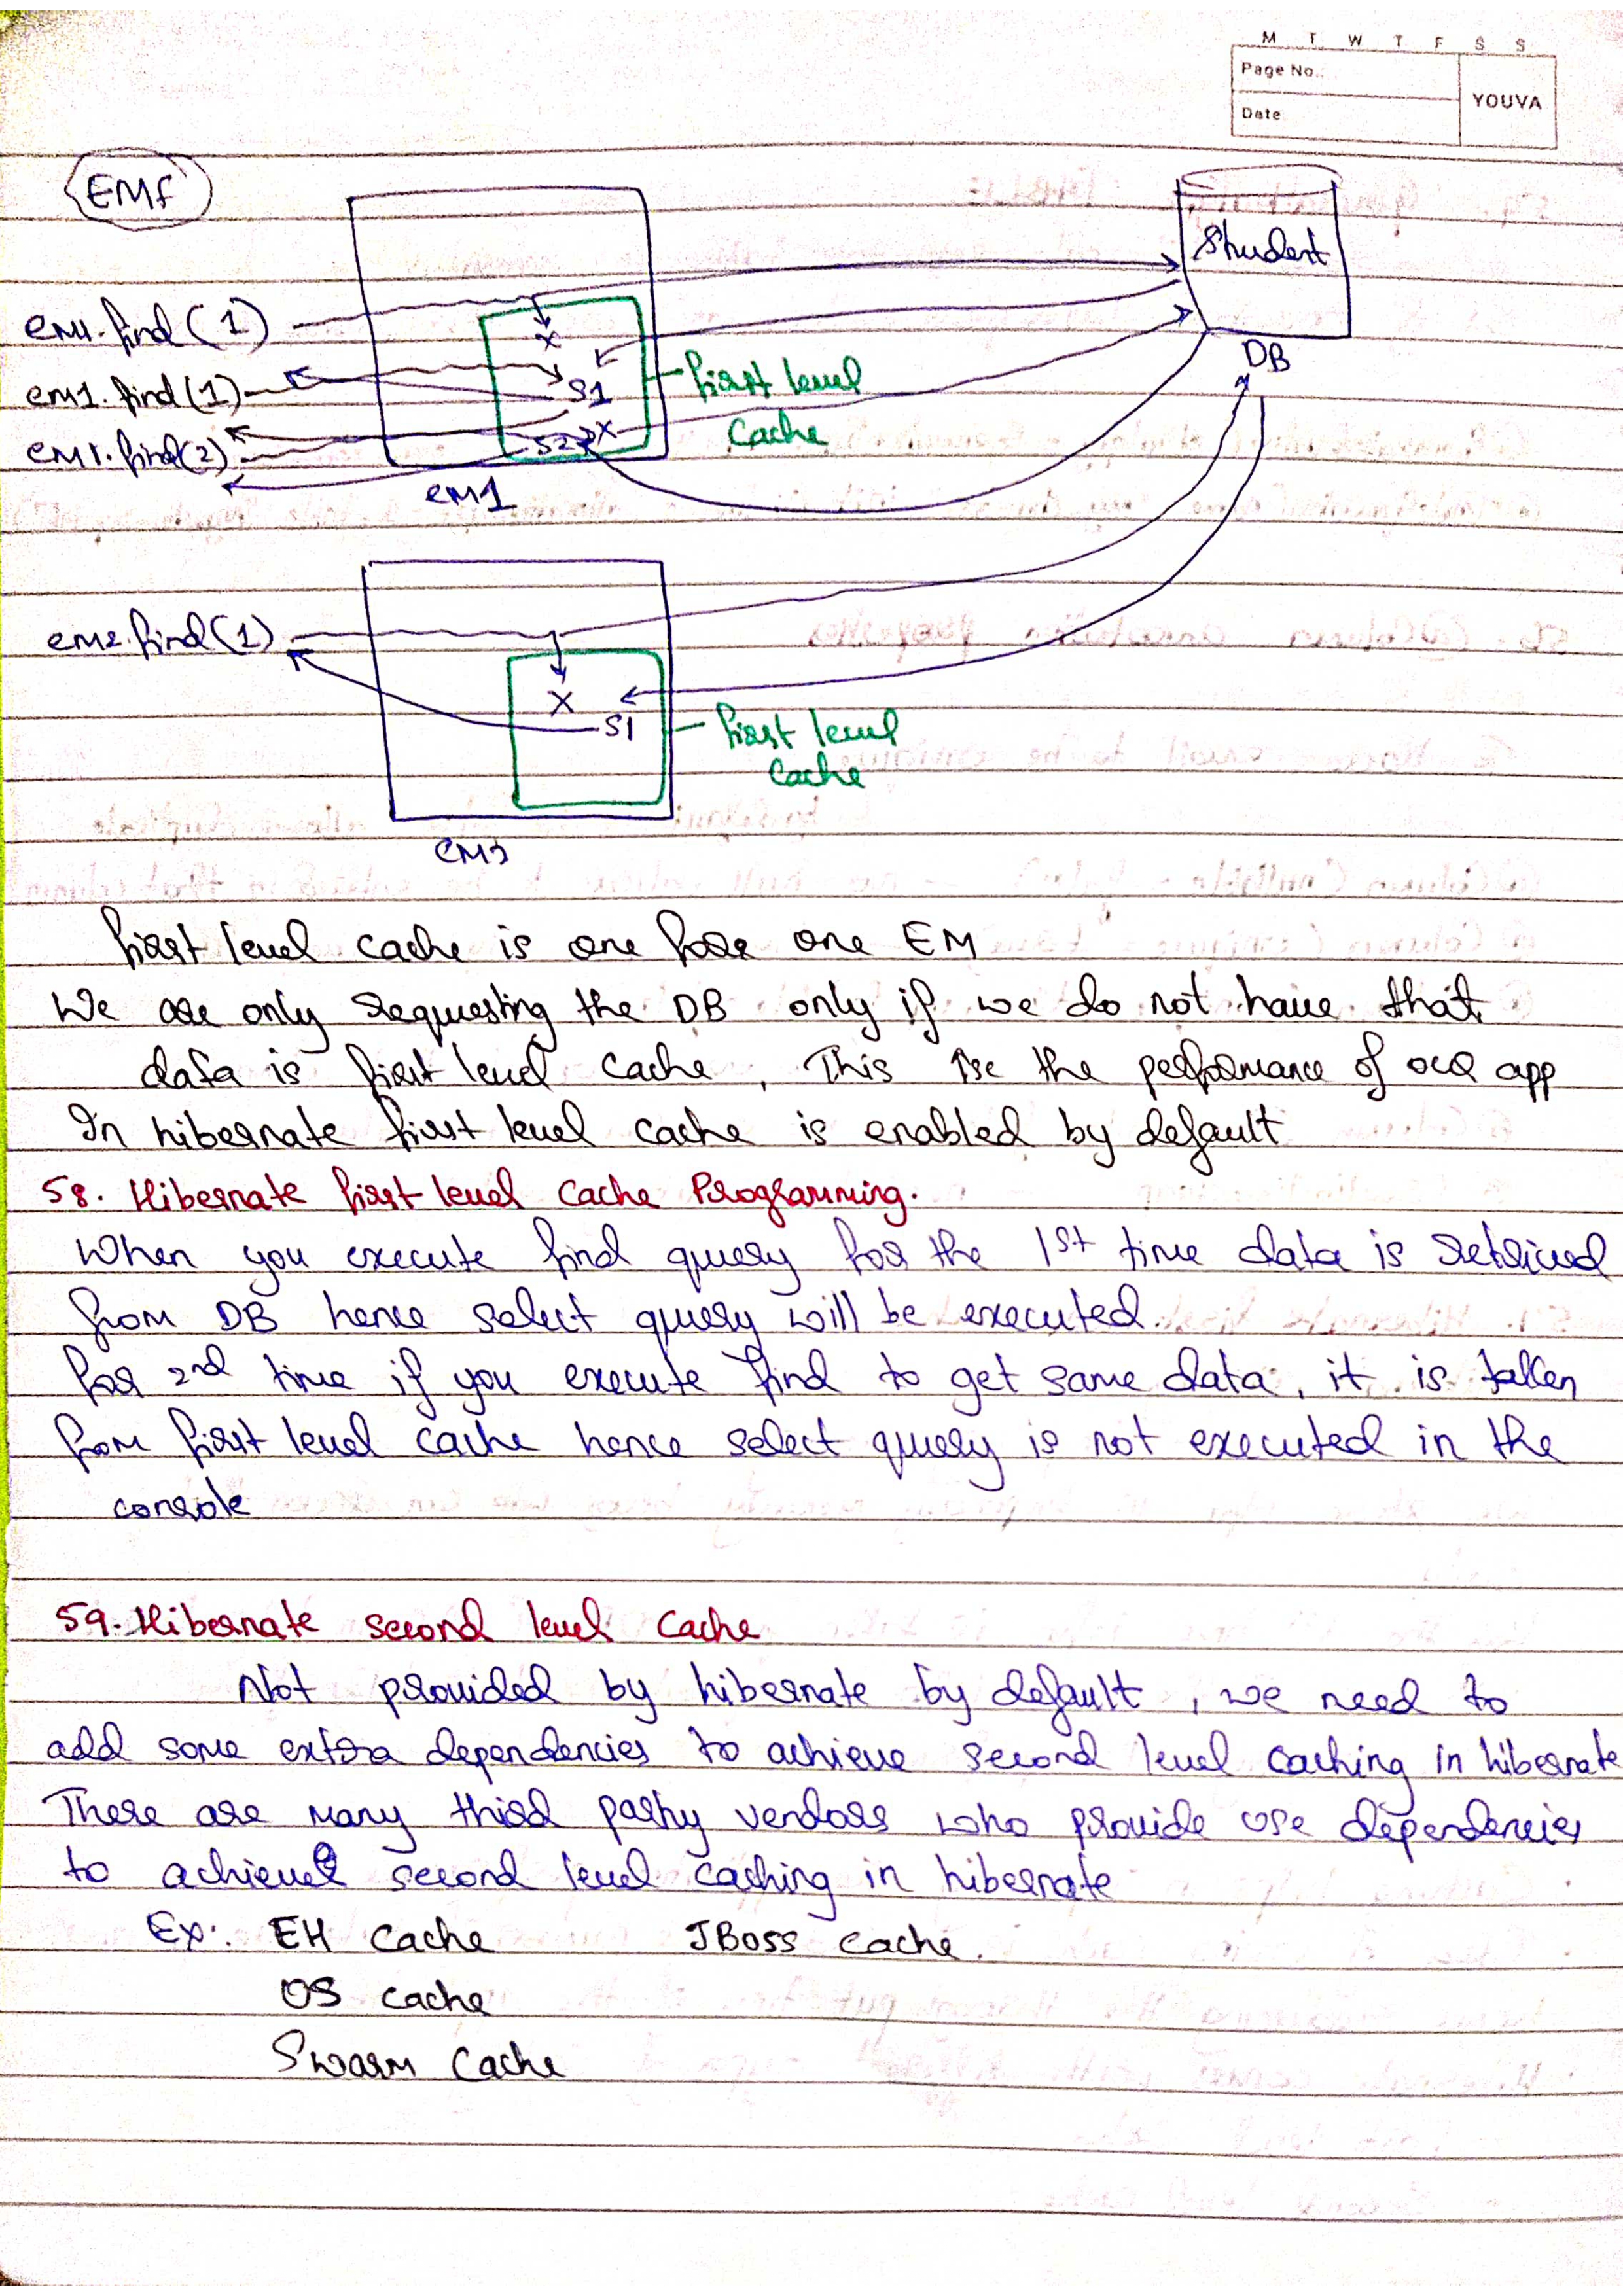 M T W T F S S
Page No.:
YOUVA
Date
EMf
Student
em1.find(1)
DB
em1.find(1)
S1
first level
cache
em1.find(2)
S2
X
em1
em2.find(1)
X
S1
first level
cache
first level cache is one for one EM
We are only requesting the DB only if we do not have that
data is first level cache, This Inc the performance of our app
In hibernate first level cache is enabled by default
58. Hibernate first level cache Programming.
When you execute find query for the 1st time data is retrived
from DB hence select query will be executed.
for 2nd time if you execute find to get same data, it is taken
from first level cache hence select query is not executed in the
console
59. Hibernate second level cache
Not provided by hibernate by default, we need to
add some extra dependencies to achieve second level caching in hibernate
There are many third party vendors who provide use dependencies
to achieve second level caching in hibernate
Ex: EH cache JBoss cache.
OS cache
Swarm cache